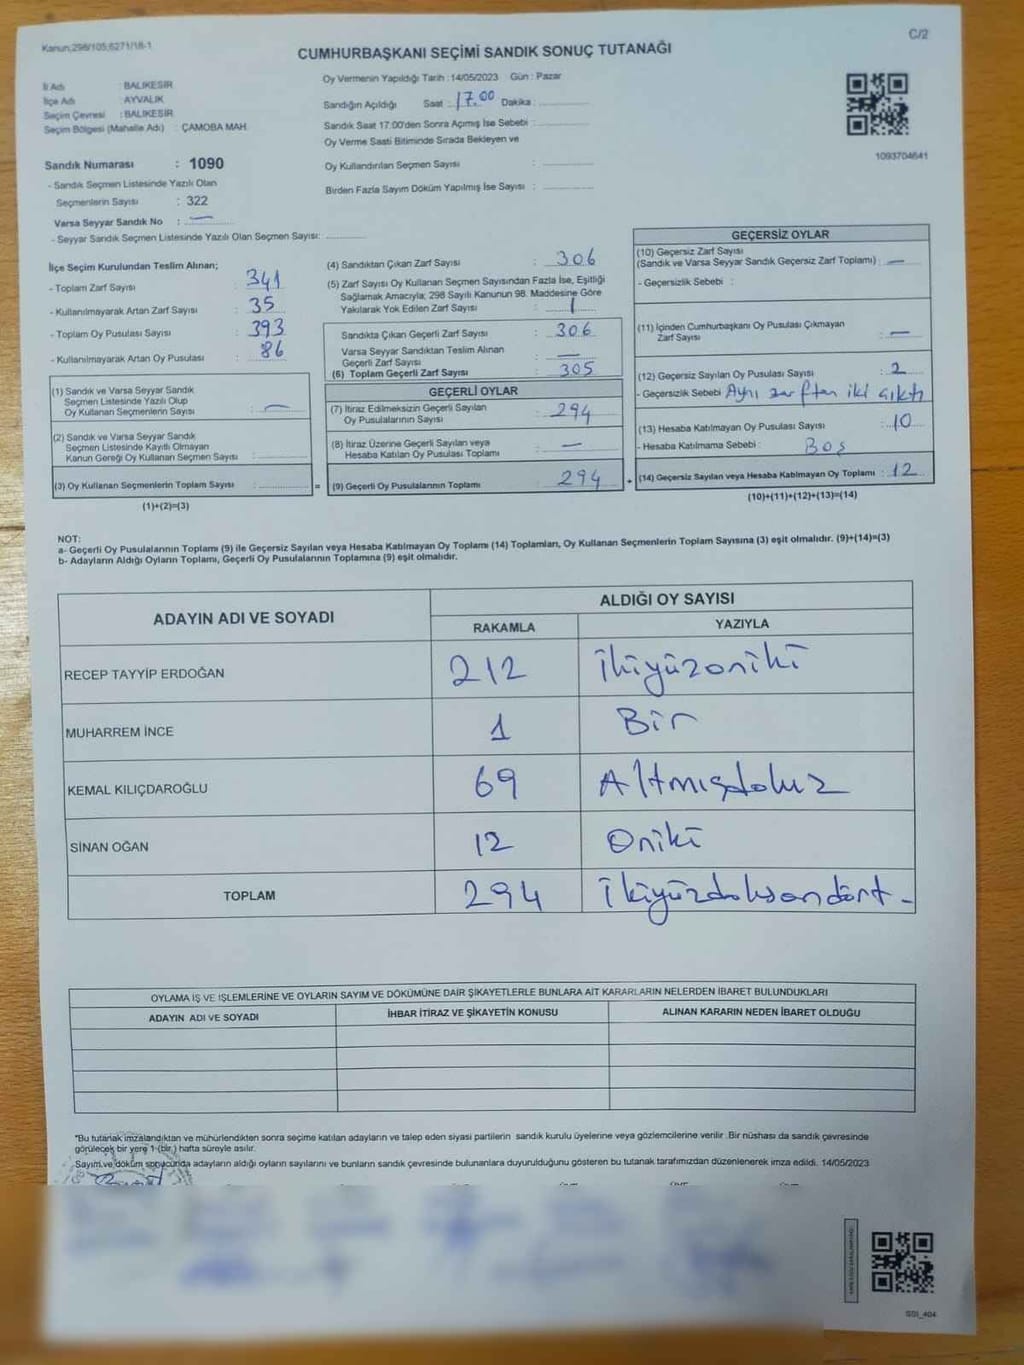 Kanun;298/105;6271/18-1
C/2
CUMHURBAŞKANI SEÇİMİ SANDIK SONUÇ TUTANAĞI
İl Adı : BALIKESİR
İlçe Adı : AYVALIK
Seçim Çevresi : BALIKESİR
Seçim Bölgesi (Mahalle Adı) : ÇAMOBA MAH.
Sandık Numarası : 1090
- Sandık Seçmen Listesinde Yazılı Olan
Seçmenlerin Sayısı : 322
Varsa Seyyar Sandık No : —
- Seyyar Sandık Seçmen Listesinde Yazılı Olan Seçmen Sayısı:
Oy Vermenin Yapıldığı Tarih :14/05/2023 Gün : Pazar
Sandığın Açıldığı Saat : 17.00 Dakika :
Sandık Saat 17.00'den Sonra Açımış İse Sebebi :
Oy Verme Saati Bitiminde Sırada Bekleyen ve
Oy Kullandırılan Seçmen Sayısı :
Birden Fazla Sayım Döküm Yapılmış İse Sayısı :
1093704641
İlçe Seçim Kurulundan Teslim Alınan;
- Toplam Zarf Sayısı : 341
- Kullanılmayarak Artan Zarf Sayısı : 35
- Toplam Oy Pusulası Sayısı : 393
- Kullanılmayarak Artan Oy Pusulası : 86
(1) Sandık ve Varsa Seyyar Sandık
Seçmen Listesinde Yazılı Olup
Oy Kullanan Seçmenlerin Sayısı : —
(2) Sandık ve Varsa Seyyar Sandık
Seçmen Listesinde Kayıtlı Olmayan
Kanun Gereği Oy Kullanan Seçmen Sayısı :
(3) Oy Kullanan Seçmenlerin Toplam Sayısı :
(1)+(2)=(3)
(4) Sandıktan Çıkan Zarf Sayısı : 306
(5) Zarf Sayısı Oy Kullanan Seçmen Sayısından Fazla İse, Eşitliği
Sağlamak Amacıyla; 298 Sayılı Kanunun 98. Maddesine Göre
Yakılarak Yok Edilen Zarf Sayısı : 1
Sandıkta Çıkan Geçerli Zarf Sayısı : 306
Varsa Seyyar Sandıktan Teslim Alınan
Geçerli Zarf Sayısı : —
(6) Toplam Geçerli Zarf Sayısı : 305
GEÇERLİ OYLAR
(7) İtiraz Edilmeksizin Geçerli Sayılan
Oy Pusulalarının Sayısı : 294
(8) İtiraz Üzerine Geçerli Sayılan veya
Hesaba Katılan Oy Pusulası Toplamı : —
= (9) Geçerli Oy Pusulalarının Toplamı : 294
GEÇERSİZ OYLAR
(10) Geçersiz Zarf Sayısı
(Sandık ve Varsa Seyyar Sandık Geçersiz Zarf Toplamı) : —
- Geçersizlik Sebebi :
(11) İçinden Cumhurbaşkanı Oy Pusulası Çıkmayan
Zarf Sayısı : —
(12) Geçersiz Sayılan Oy Pusulası Sayısı : 2
- Geçersizlik Sebebi : Aynı zarftan iki çıktı
(13) Hesaba Katılmayan Oy Pusulası Sayısı : 10
- Hesaba Katılmama Sebebi : Boş
+ (14) Geçersiz Sayılan veya Hesaba Katılmayan Oy Toplamı : 12
(10)+(11)+(12)+(13)=(14)
NOT:
a- Geçerli Oy Pusulalarının Toplamı (9) ile Geçersiz Sayılan veya Hesaba Katılmayan Oy Toplamı (14) Toplamları, Oy Kullanan Seçmenlerin Toplam Sayısına (3) eşit olmalıdır. (9)+(14)=(3)
b- Adayların Aldığı Oyların Toplamı, Geçerli Oy Pusulalarının Toplamına (9) eşit olmalıdır.
ADAYIN ADI VE SOYADI
ALDIĞI OY SAYISI
RAKAMLA YAZIYLA
RECEP TAYYİP ERDOĞAN 212 İkiyüzoniki
MUHARREM İNCE 1 Bir
KEMAL KILIÇDAROĞLU 69 Altmışdokuz
SİNAN OĞAN 12 Oniki
TOPLAM 294 İkiyüzdoksandört -
OYLAMA İŞ VE İŞLEMLERİNE VE OYLARIN SAYIM VE DÖKÜMÜNE DAİR ŞİKAYETLERLE BUNLARA AİT KARARLARIN NELERDEN İBARET BULUNDUKLARI
ADAYIN ADI VE SOYADI İHBAR İTİRAZ VE ŞİKAYETİN KONUSU ALINAN KARARIN NEDEN İBARET OLDUĞU
"Bu tutanak imzalandıktan ve mühürlendikten sonra seçime katılan adayların ve talep eden siyasi partilerin sandık kurulu üyelerine veya gözlemcilerine verilir. Bir nüshası da sandık çevresinde
görülecek bir yere 1-(bir) hafta süreyle asılır.
Sayım ve döküm sonucunda adayların aldığı oyların sayılarını ve bunların sandık çevresinde bulunanlara duyurulduğunu gösteren bu tutanak tarafımızdan düzenlenerek imza edildi. 14/05/2023